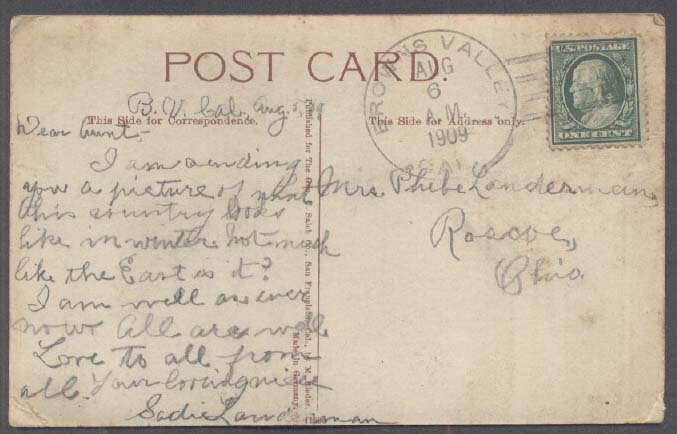 POST CARD.
BROWNS VALLEY
AUG
6
A.M.
1909
CAL.
U.S. POSTAGE
ONE CENT
This Side for Correspondence.
This Side for Address only.
B. V. Cal. Aug. 5, 09
Dear Aunt,-
I am sending
you a picture of what
this country looks
like in winter. Not much
like the East is it?
I am well as ever
now. All are well
Love to all from
all. Your loving niece
Sadie Landerman
Mrs. Phebe Landerman,
Roscoe,
Ohio.
Published for The
San Francisco, Cal.,
Made in Germany.